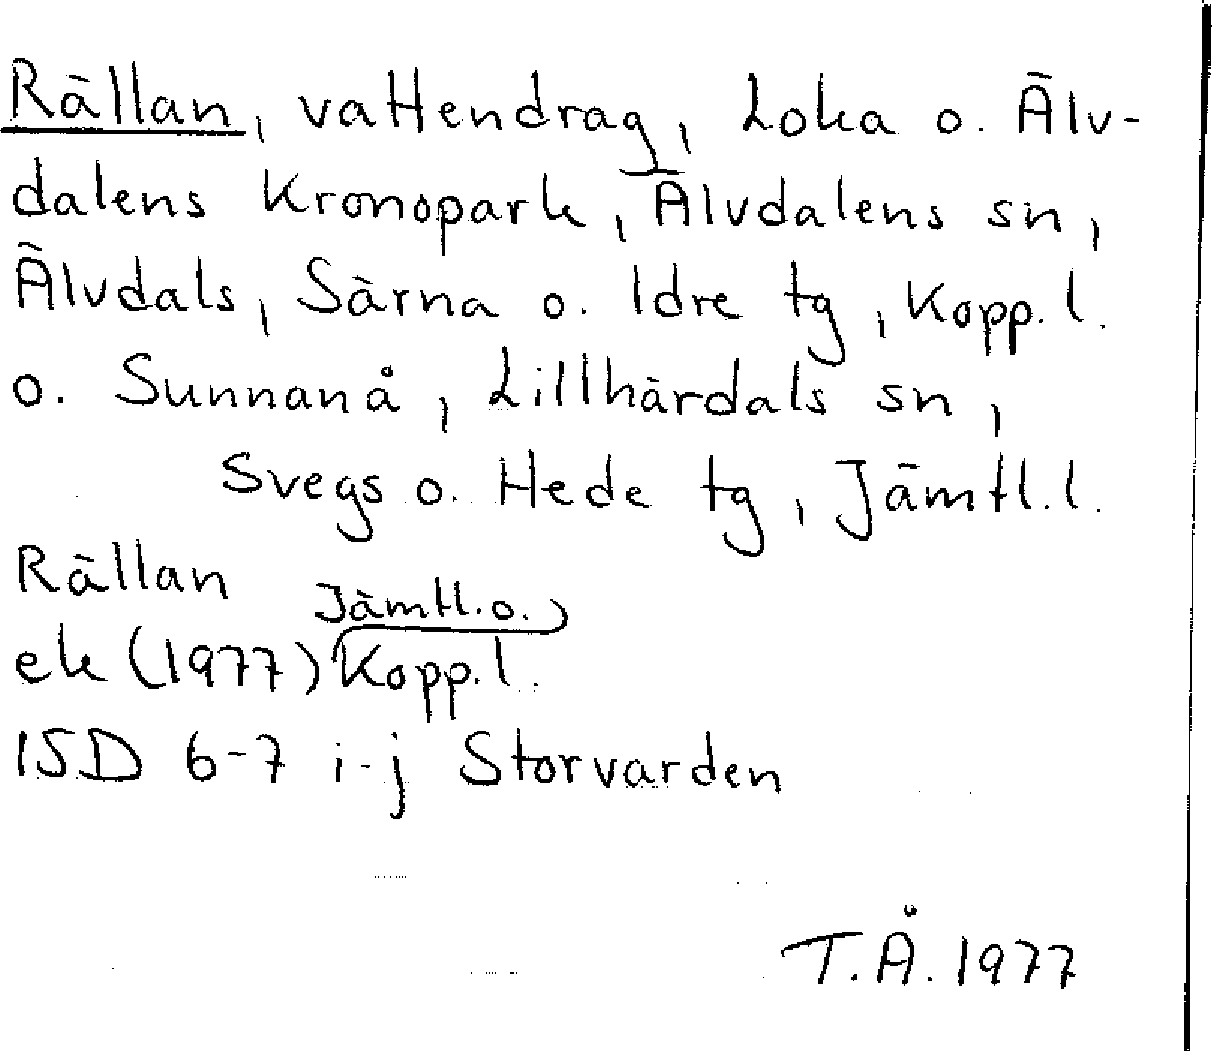 Rällan, vattendrag, Loka o. Älv-
dalens Kronopark, Älvdalens sn,
Älvdals, Särna o. Idre tg, Kopp. l.
o. Sunnanå, Lillhärdals sn,
Svegs o. Hede tg, Jämtl. l.
Rällan
Jämtl. o.
ek (1977) Kopp. l.
15D 6-7 i-j Storvarden
T.Å. 1977